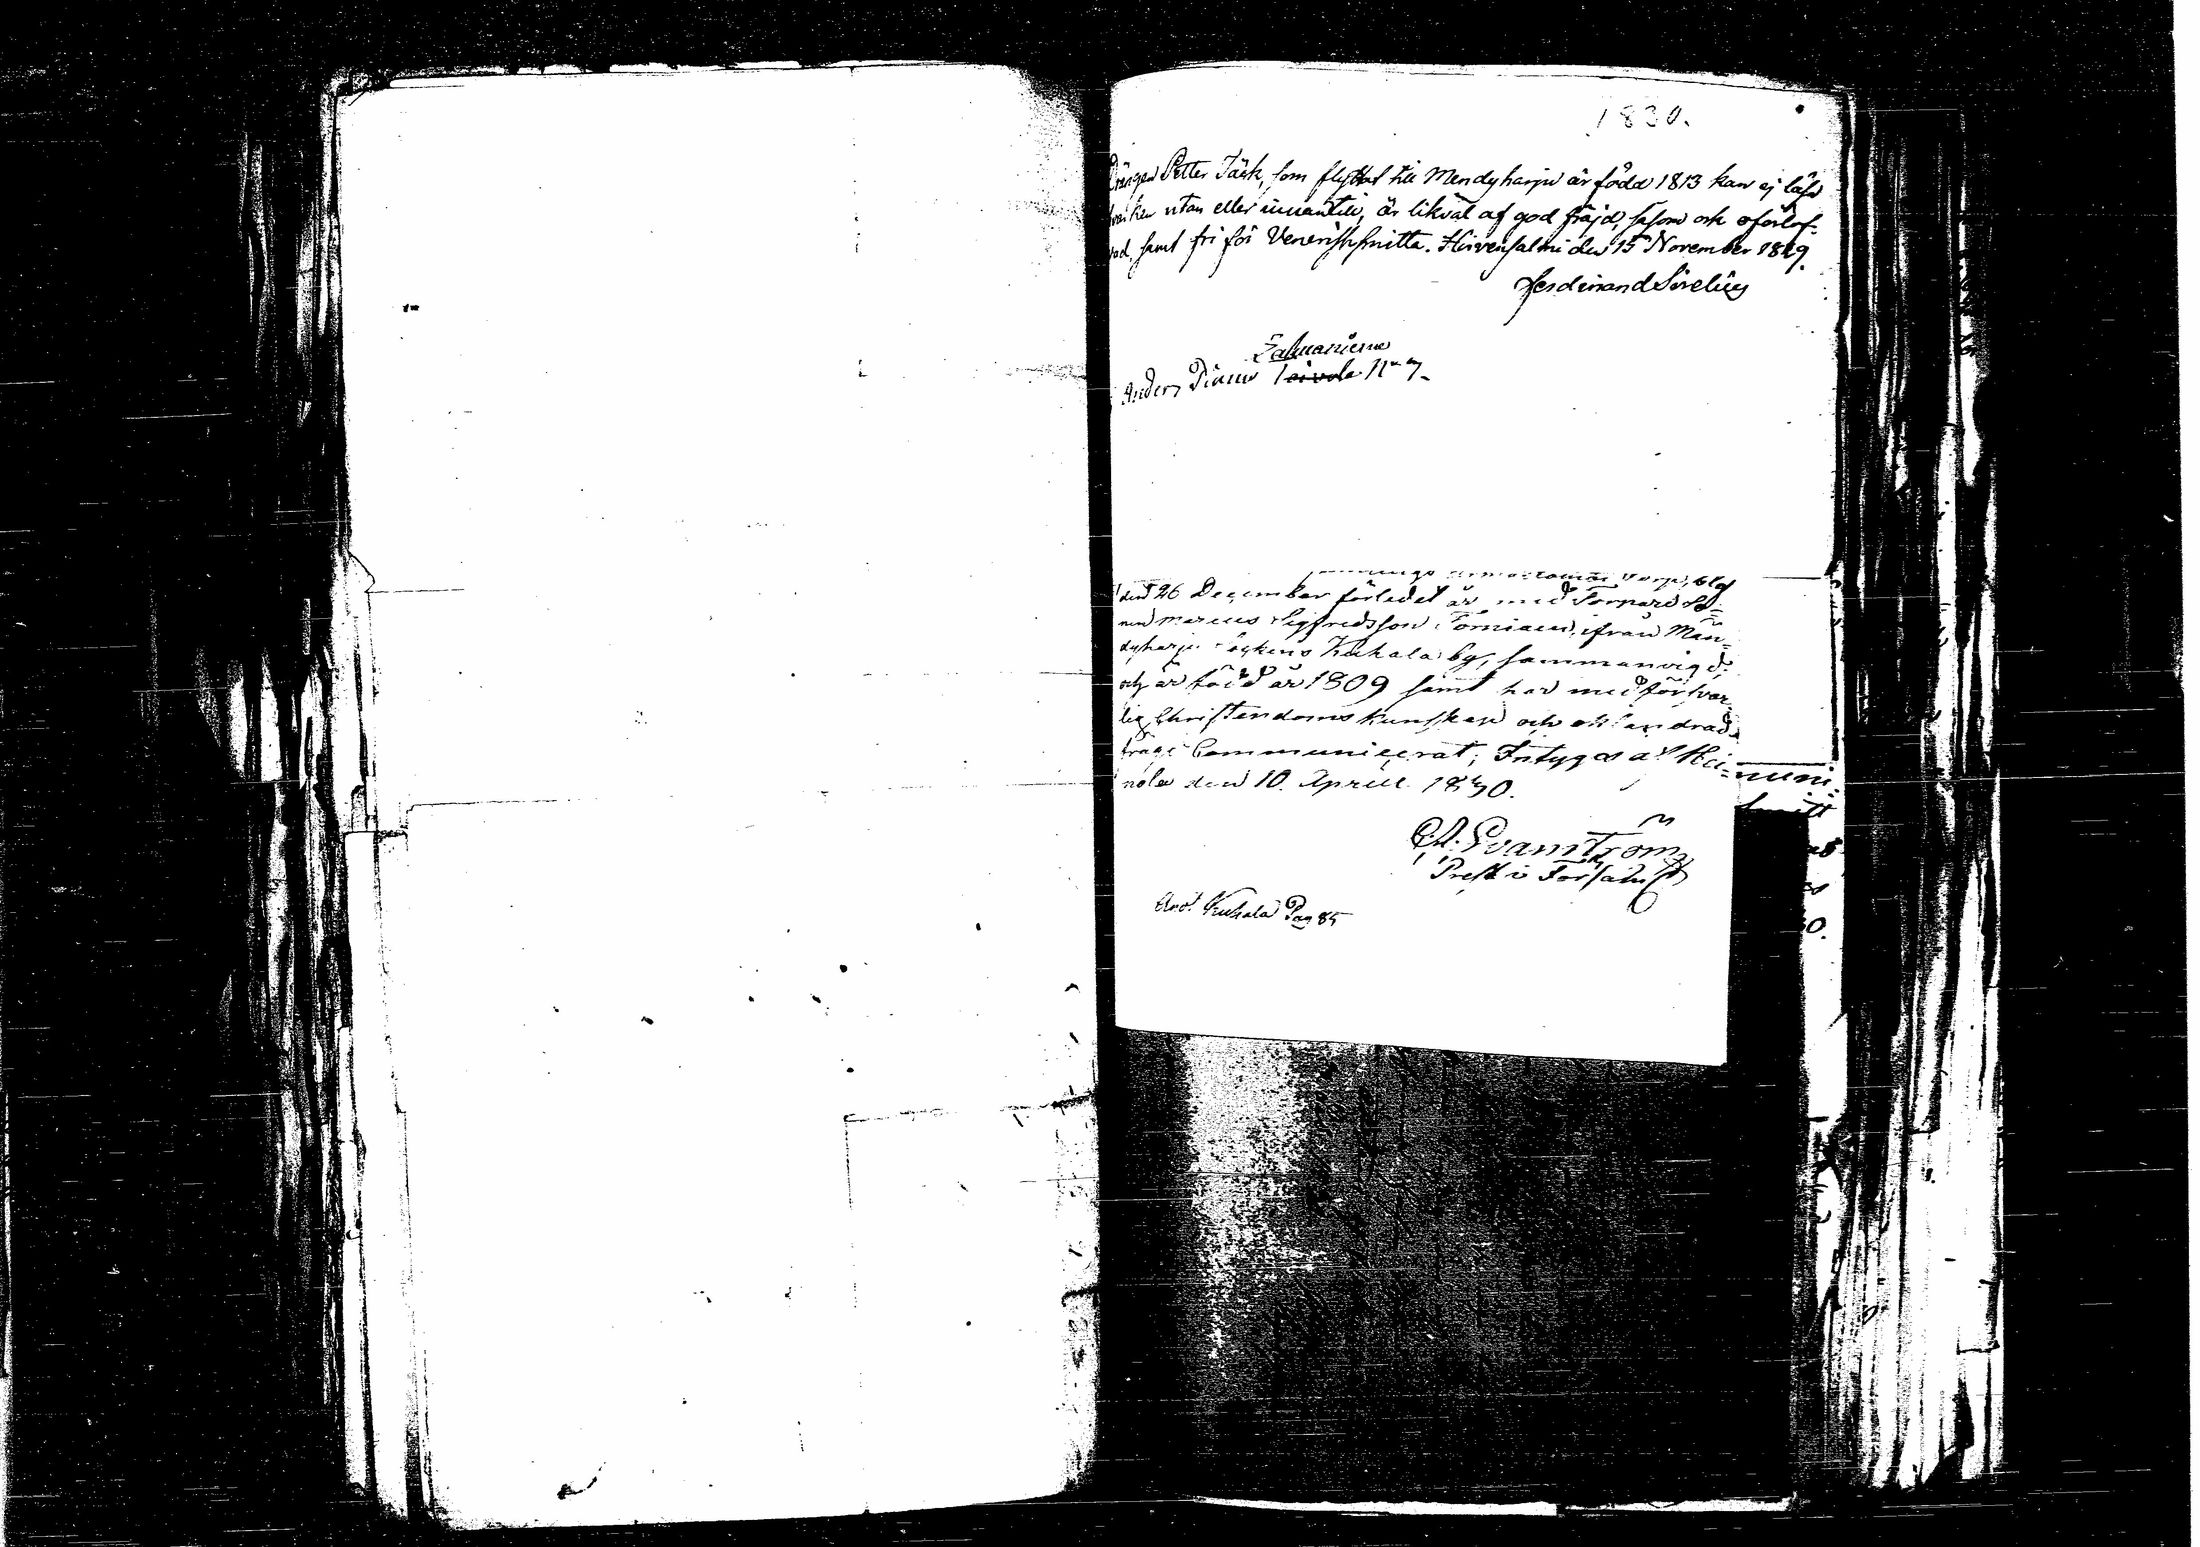 1830.
Drängen Petter Jäsk, som flyttat till Mendyharju är född 1813 kan ej läsa
hvarken utan eller innantill, är likväl af god fräjd, såsom ock oförlof-
vad, samt fri för Venerisk smitta. Hirvensalmi den 15 November 1829.
Ferdinand Sirelius
Salmaniemi
Anders Toivola N° 7.
den 26 December förledet år med
Marcus Sigfredsson Torniain, ifrån Män-
dyharju Sockens Kukala by, sammanvigd,
och är född år 1809 samt har med försvar-
lig Christendoms kunskap och oklandrad
fräge Communicerat; Intygas af Hei-
nola den 10. Aprill 1830.
C. A. Svanström
Prest i Församl.
smitt
0.
Anot. Kukala Pag 85